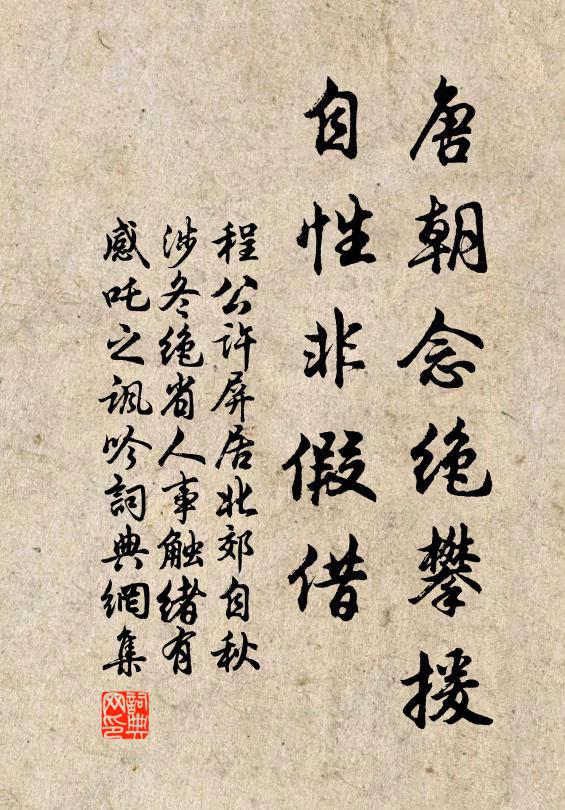 唐朝念绝攀援
自性非假借
程公许屏居北郊自秋
涉冬绝省人事触绪有
感吒之讽吟詞典網集
詞典网印